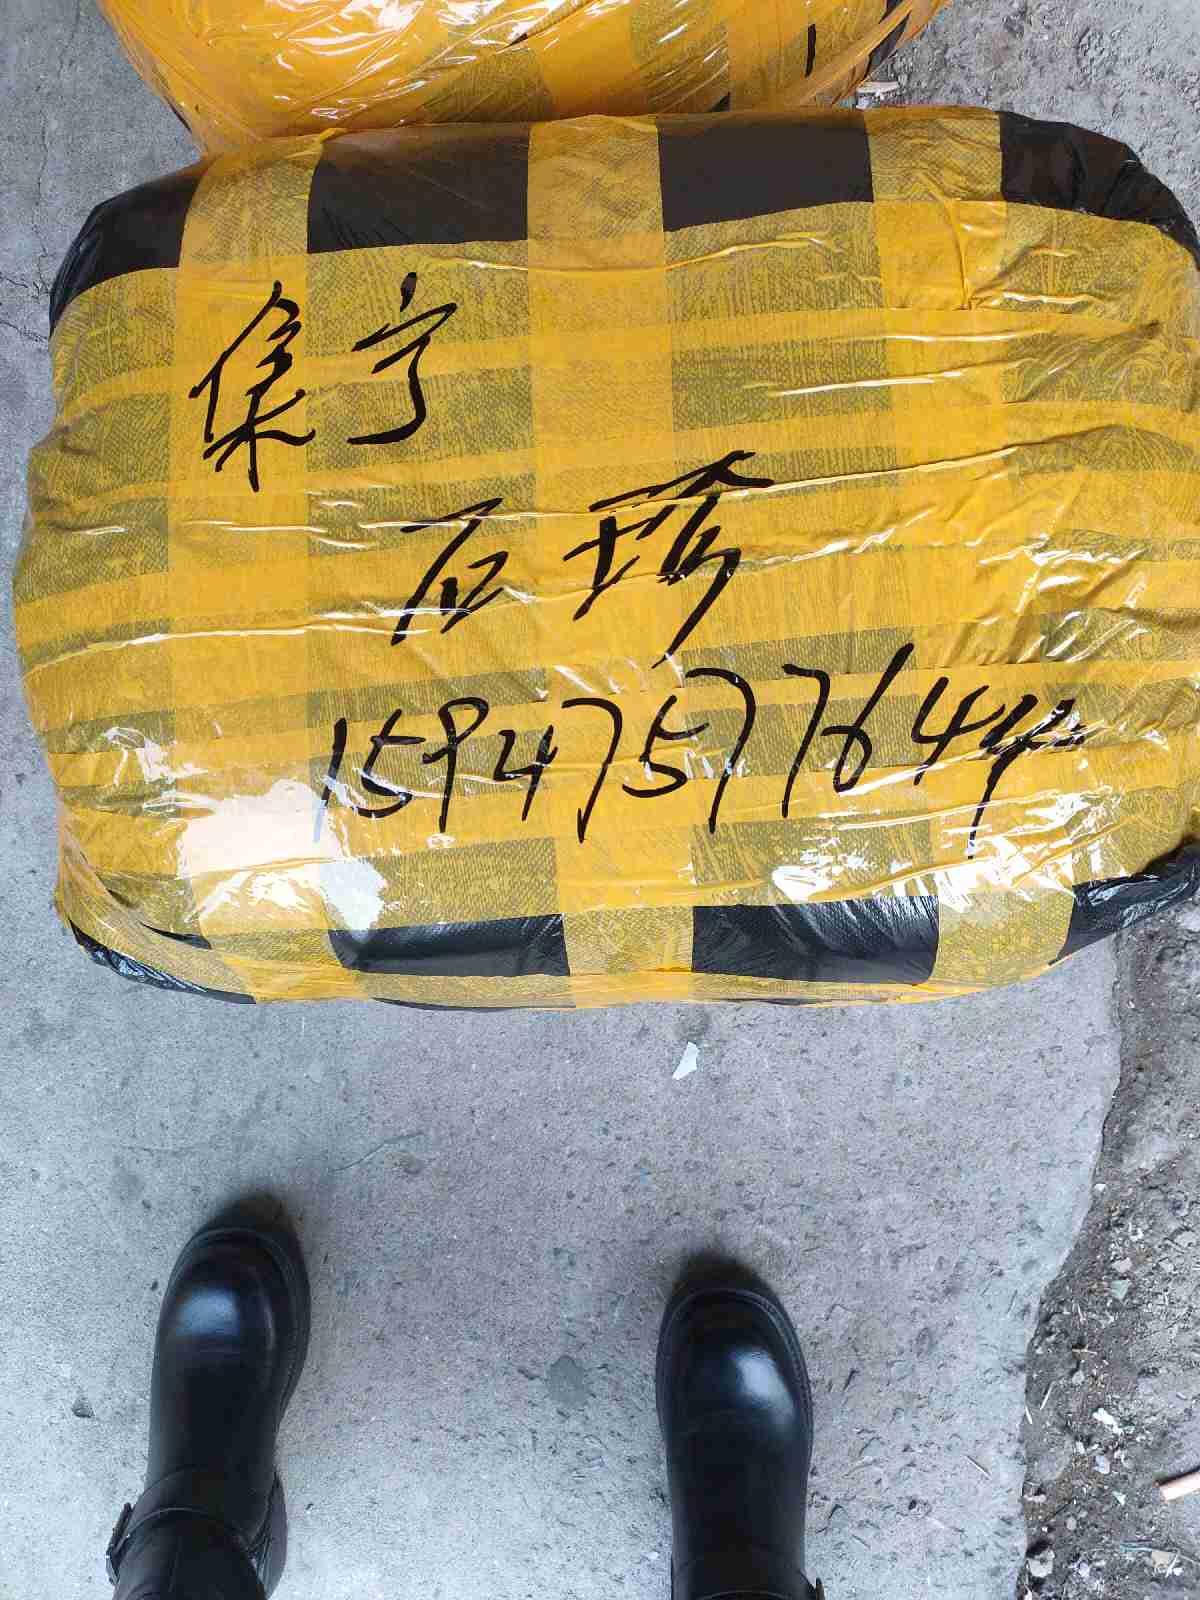 集宁
石
15947577644